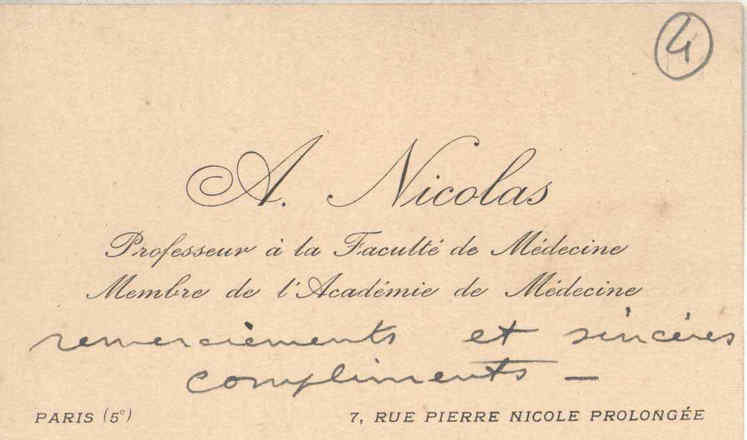 4
A. Nicolas
Professeur à la Faculté de Médecine
Membre de l'Académie de Médecine
remerciements et sincères
compliments —
PARIS (5e) 7, RUE PIERRE NICOLE PROLONGÉE